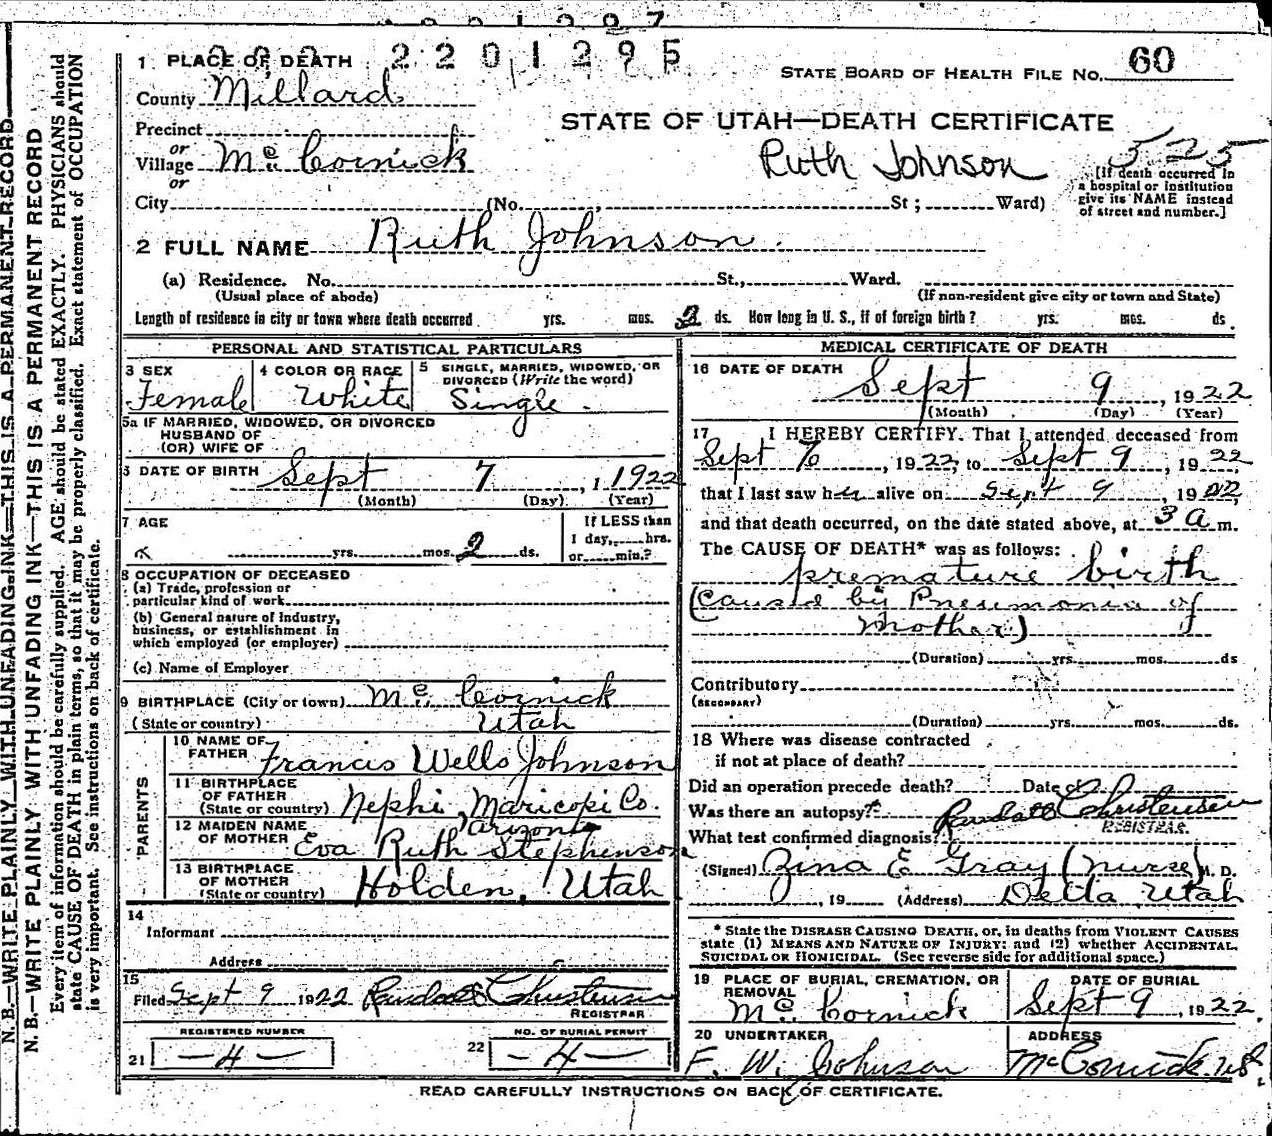 2201295
1 PLACE OF DEATH
STATE BOARD OF HEALTH FILE NO. 60
County Millard
STATE OF UTAH—DEATH CERTIFICATE
Precinct
or
Village Mc Cornick
Ruth Johnson
525
or
[If death occurred in
a hospital or institution
give its NAME instead
of street and number.]
City (No. , St ; Ward)
2 FULL NAME Ruth Johnson.
(a) Residence. No. St., Ward.
(Usual place of abode) (If non-resident give city or town and State)
Length of residence in city or town where death occurred yrs. mos. 2 ds. How long in U. S., if of foreign birth ? yrs. mos. ds.
PERSONAL AND STATISTICAL PARTICULARS
3 SEX
Female
4 COLOR OR RACE
White
5 SINGLE, MARRIED, WIDOWED, OR
DIVORCED (Write the word)
Single
5a IF MARRIED, WIDOWED, OR DIVORCED
HUSBAND OF
(OR) WIFE OF
6 DATE OF BIRTH Sept 7, 1922
(Month) (Day) (Year)
7 AGE
yrs. mos. 2 ds.
If LESS than
1 day, hrs.
or min.?
8 OCCUPATION OF DECEASED
(a) Trade, profession or
particular kind of work
(b) General nature of industry,
business, or establishment in
which employed (or employer)
(c) Name of Employer
9 BIRTHPLACE (City or town) Mc Cornick
(State or country) Utah
PARENTS
10 NAME OF
FATHER Francis Wells Johnson
11 BIRTHPLACE
OF FATHER
(State or country) Nephi, Maricopi Co.
Arizona
12 MAIDEN NAME
OF MOTHER Eva Ruth Stephenson
13 BIRTHPLACE
OF MOTHER
(State or country) Holden, Utah
14
Informant
Address
15
Filed Sept 9 1922 Randall Christensen
REGISTRAR
REGISTERED NUMBER
21 —4—
NO. OF BURIAL PERMIT
22 —4—
MEDICAL CERTIFICATE OF DEATH
16 DATE OF DEATH
Sept 9, 1922
(Month) (Day) (Year)
17 I HEREBY CERTIFY. That I attended deceased from
Sept , 1922, to Sept 9, 1922
that I last saw her alive on Sept 9, 1922
and that death occurred, on the date stated above, at 3 a m.
The CAUSE OF DEATH* was as follows:
premature birth
(caused by Pneumonia of
mother)
(Duration) yrs. mos. ds
Contributory
(SECONDARY)
(Duration) yrs. mos. ds.
18 Where was disease contracted
if not at place of death?
Did an operation precede death? Date of
Was there an autopsy? Randall Christensen
REGISTRAR.
What test confirmed diagnosis?
(Signed) Zina E Gray (nurse) M. D.
, 19 (Address) Delta, Utah
* State the DISEASE CAUSING DEATH, or, in deaths from VIOLENT CAUSES
state (1) MEANS AND NATURE OF INJURY; and (2) whether ACCIDENTAL,
SUICIDAL OR HOMICIDAL. (See reverse side for additional space.)
19 PLACE OF BURIAL, CREMATION, OR
REMOVAL
Mc Cornick
DATE OF BURIAL
Sept 9, 1922.
20 UNDERTAKER
F. W. Johnson
ADDRESS
McCornick
READ CAREFULLY INSTRUCTIONS ON BACK OF CERTIFICATE.
N. B.—WRITE PLAINLY WITH UNFADING INK—THIS IS A PERMANENT RECORD
N. B.—WRITE PLAINLY WITH UNFADING INK—THIS IS A PERMANENT RECORD
Every item of information should be carefully supplied. AGE should be stated EXACTLY. PHYSICIANS should
state CAUSE OF DEATH in plain terms, so that it may be properly classified. Exact statement of OCCUPATION
is very important. See instructions on back of certificate.